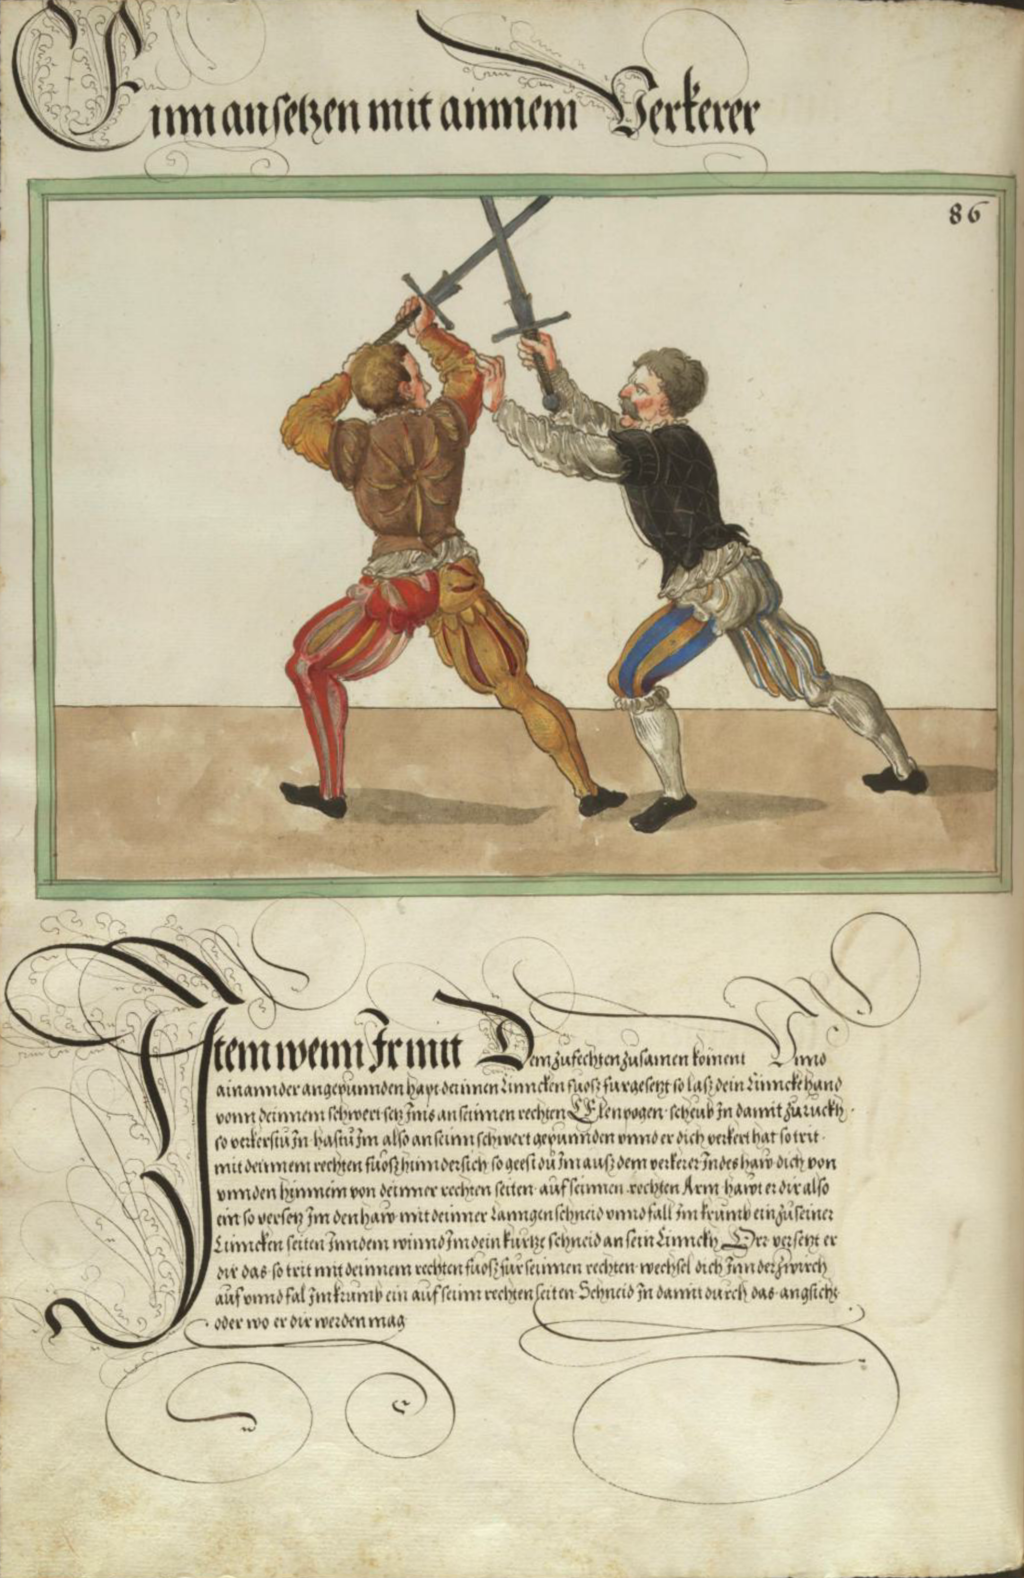 Einn ansetzen mit ainnem Verkerer
86
Item wenn Ir mit Dem zufechten zusamen koment Unnd
ainannder angepunnden hapt deinnen Linncken fuosz furgesetzt so lasz dein Linncke hand
vonn deinnem schwert setz Inis an seinnen rechten Elenpogen scheub In damit zuruckh
so verkerstu In hastu Im also an seinn schwert gepunnden vnnd er dich verkert hat so trit
mit deinnem rechten fuosz hinndersich so geest du Im ausz dem verkerer Indes haw dich von
vnnden hinnein von deinner rechten seiten auf seinnen rechten Arm hawt er dir also
ein so versetz Im den haw mit deinner Lanngen schneid vnnd fall Im krumb ein zu seiner
Linncken seiten Inndem winnd Im dein kurtze schneid an sein Linncky Orr versetzt er
dir das so trit mit deinnem rechten fuosz fur seinnen rechten wechsel dich Inn der zwirch
auf vnnd fal Im krumb ein auf seinn rechten seiten Schneid In damit durch das angsicht
oder wo er dir werden mag